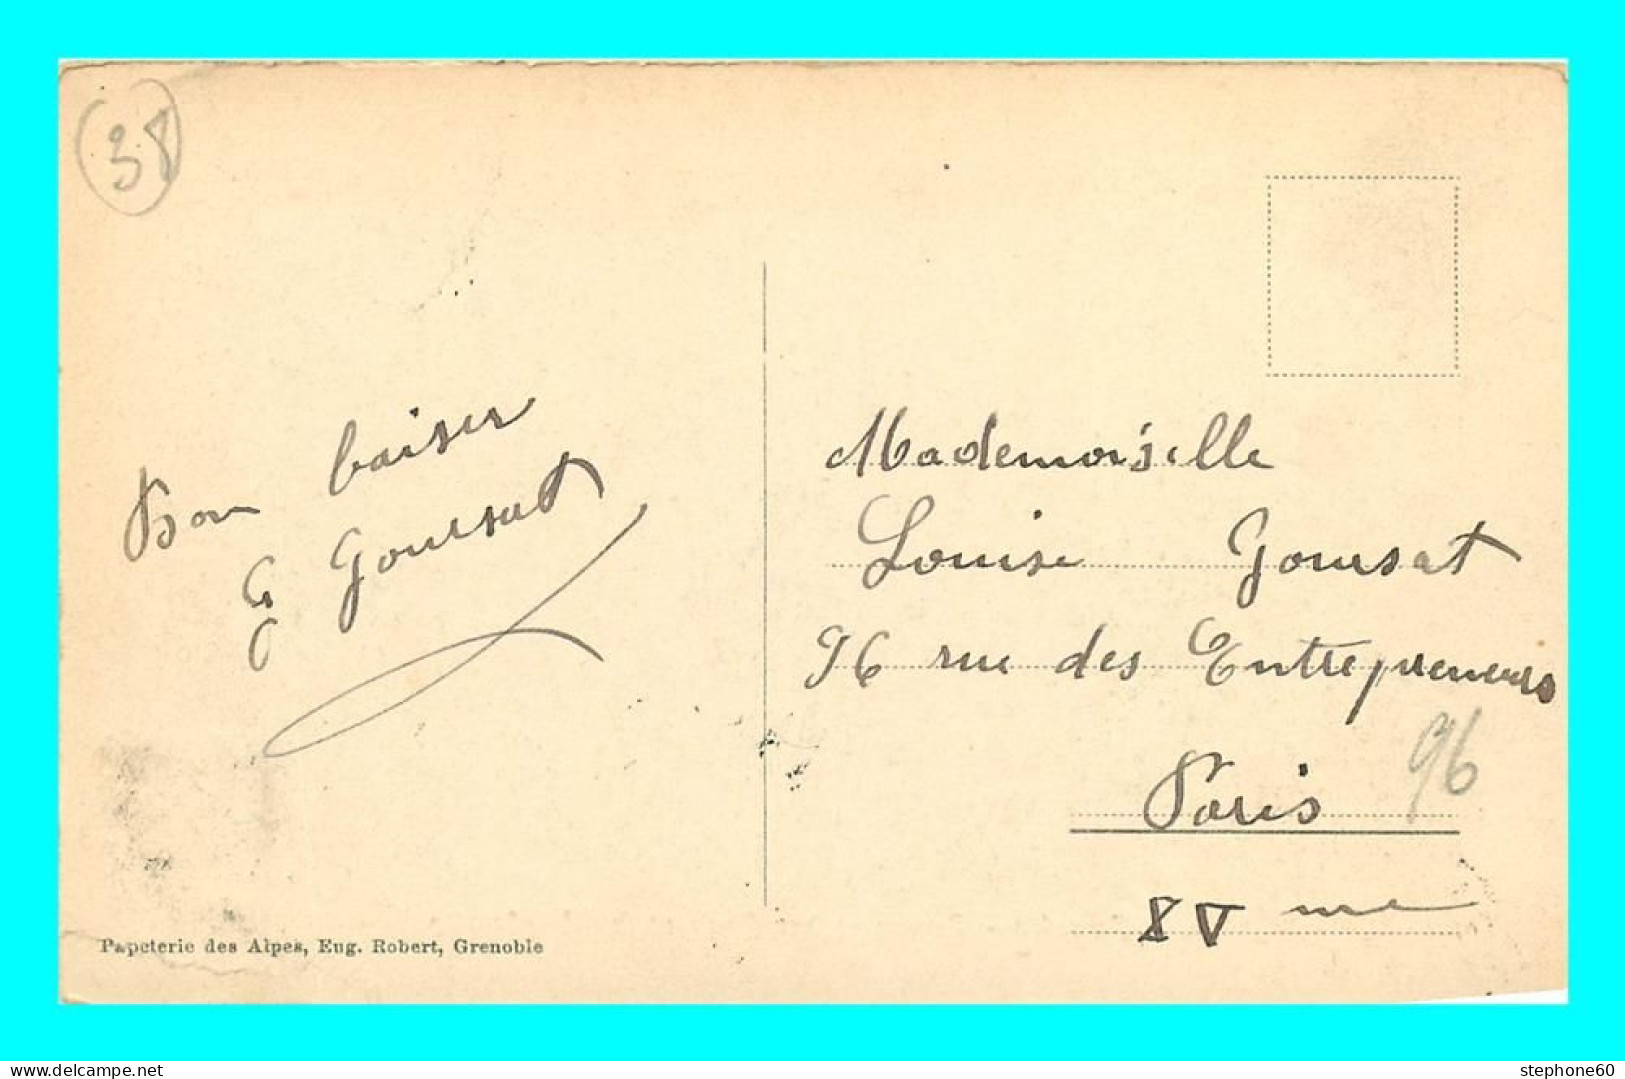 38
Bon baiser
G Goursat
Mademoiselle
Louise Goursat
96 rue des Entrepreneurs
96
Paris
XV me
Papeterie des Alpes, Eug. Robert, Grenoble
www.delcampe.net
stephone60